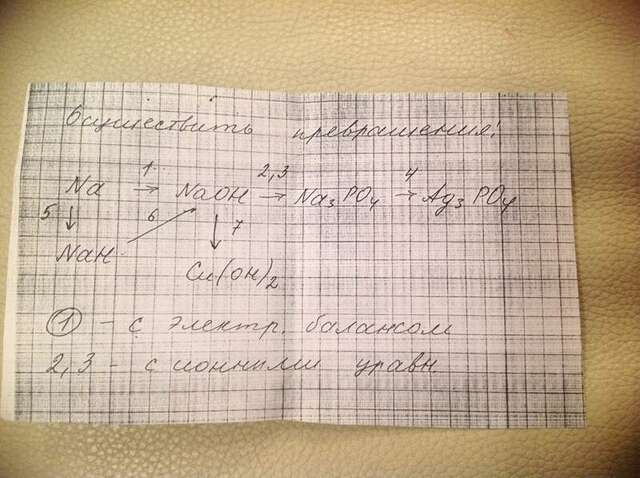 Осуществить превращения:
Na 1→ NaOH 2,3→ Na₃PO₄ 4→ Ag₃PO₄
5↓ 6 ↓7
NaH
Cu(OH)₂
① - с электр. балансом
2,3 - с ионными уравн.